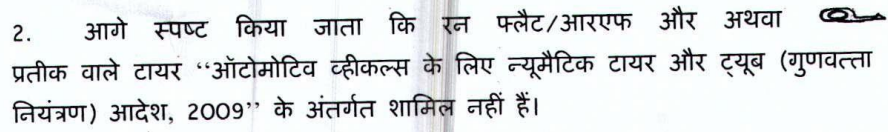 2. आगे स्पष्ट किया जाता कि रन फ्लैट/आरएफ और अथवा
प्रतीक वाले टायर “ऑटोमोटिव व्हीकल्स के लिए न्यूमैटिक टायर और ट्यूब (गुणवत्ता
नियंत्रण) आदेश, 2009” के अंतर्गत शामिल नहीं हैं।